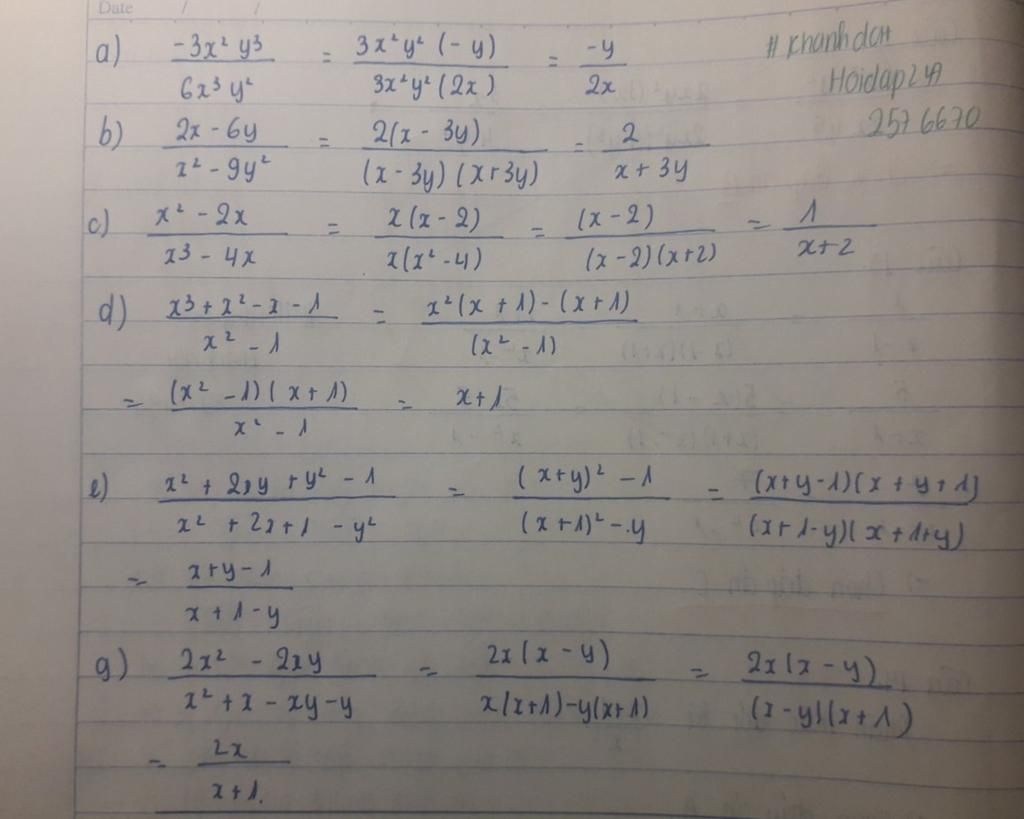 Date / /
a) -3x² y³ / 6x³ y² = 3x²y² (-y) / 3x²y² (2x) = -y / 2x
# Khanhdch
Hoidap247
2576670
b) 2x - 6y / x² - 9y² = 2(x - 3y) / (x - 3y) (x + 3y) = 2 / x + 3y
c) x² - 2x / x³ - 4x = x(x - 2) / x(x² - 4) = (x - 2) / (x - 2)(x+2) = 1 / x+2
d) x³ + x² - x - 1 / x² - 1 = x² (x + 1) - (x + 1) / (x² - 1)
= (x² - 1)(x + 1) / x² - 1 = x + 1
e) x² + 2xy + y² - 1 / x² + 2x + 1 - y² = (x+y)² - 1 / (x+1)² - y = (x+y-1)(x + y + 1) / (x+1-y)(x+1+y)
= x+y-1 / x+1-y
g) 2x² - 2xy / x² + x - xy - y = 2x(x - y) / x(x+1) - y(x+1) = 2x(x - y) / (x-y)(x+1)
= 2x / x+1.